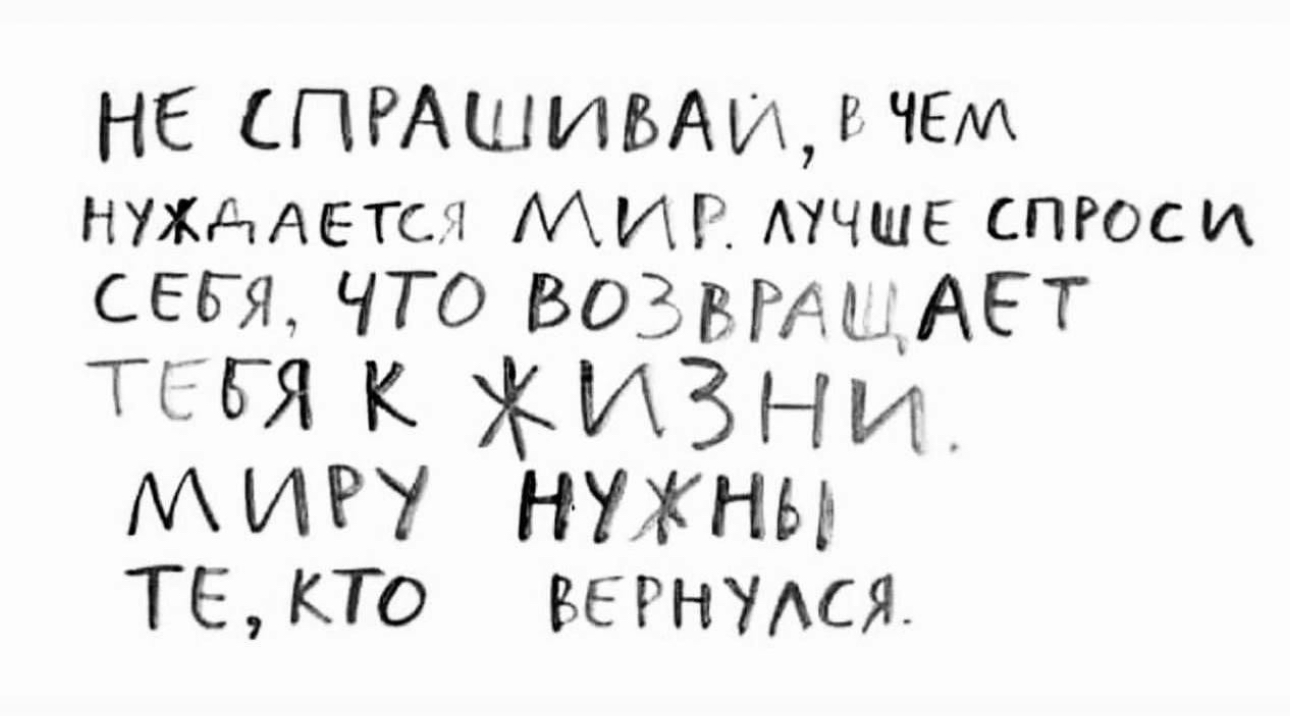 НЕ СПРАШИВАЙ, В ЧЕМ
НУЖДАЕТСЯ МИР. ЛУЧШЕ СПРОСИ
СЕБЯ, ЧТО ВОЗВРАЩАЕТ
ТЕБЯ К ЖИЗНИ.
МИРУ НУЖНЫ
ТЕ, КТО ВЕРНУЛСЯ.